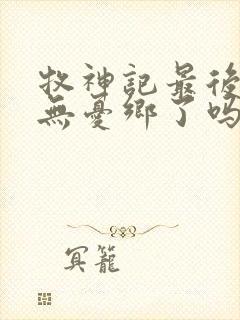 牧神記最後
無憂鄉了嗎
冥籠